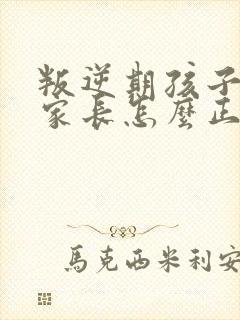 叛逆期孩子
家长怎麼正
馬克西米利安